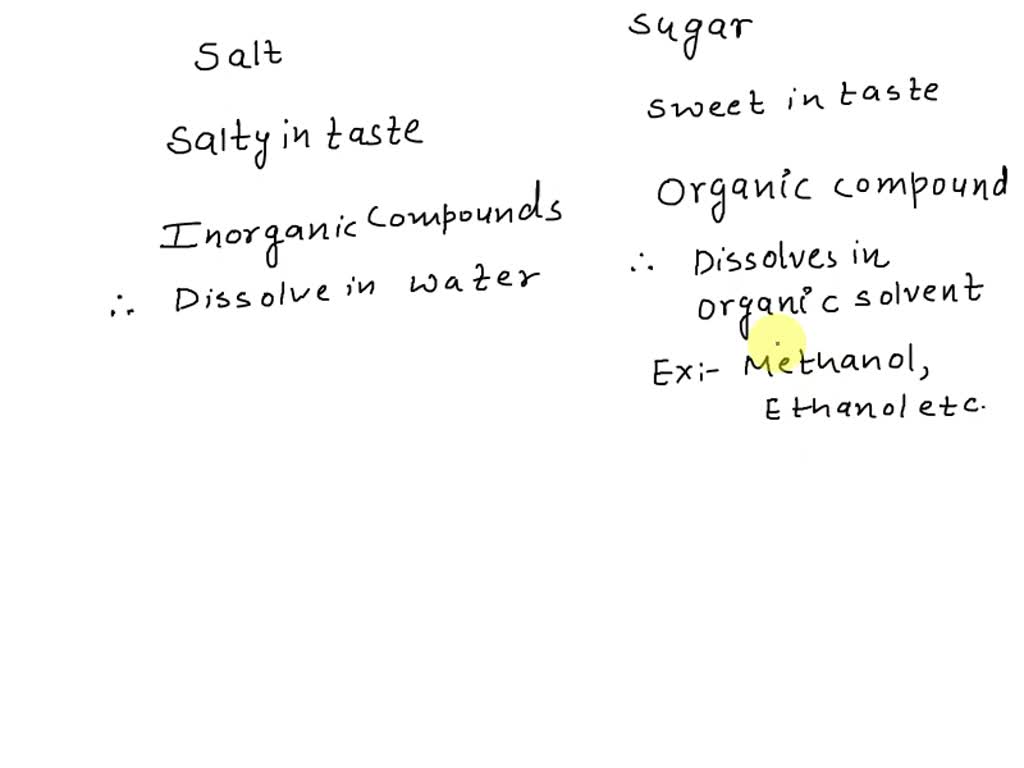 Salt
Salty in taste
Inorganic Compounds
∴ Dissolve in water
Sugar
Sweet in taste
Organic compound
∴ Dissolves in
organic solvent
Exi- Methanol,
Ethanol etc.